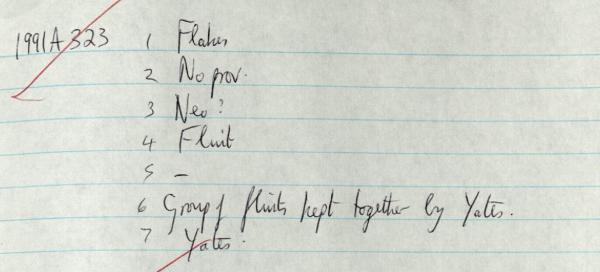 1991A323 1 Flakes
2 No prov.
3 Neo?
4 Flint
5 –
6 Group of flints kept together by Yates.
7 Yates.